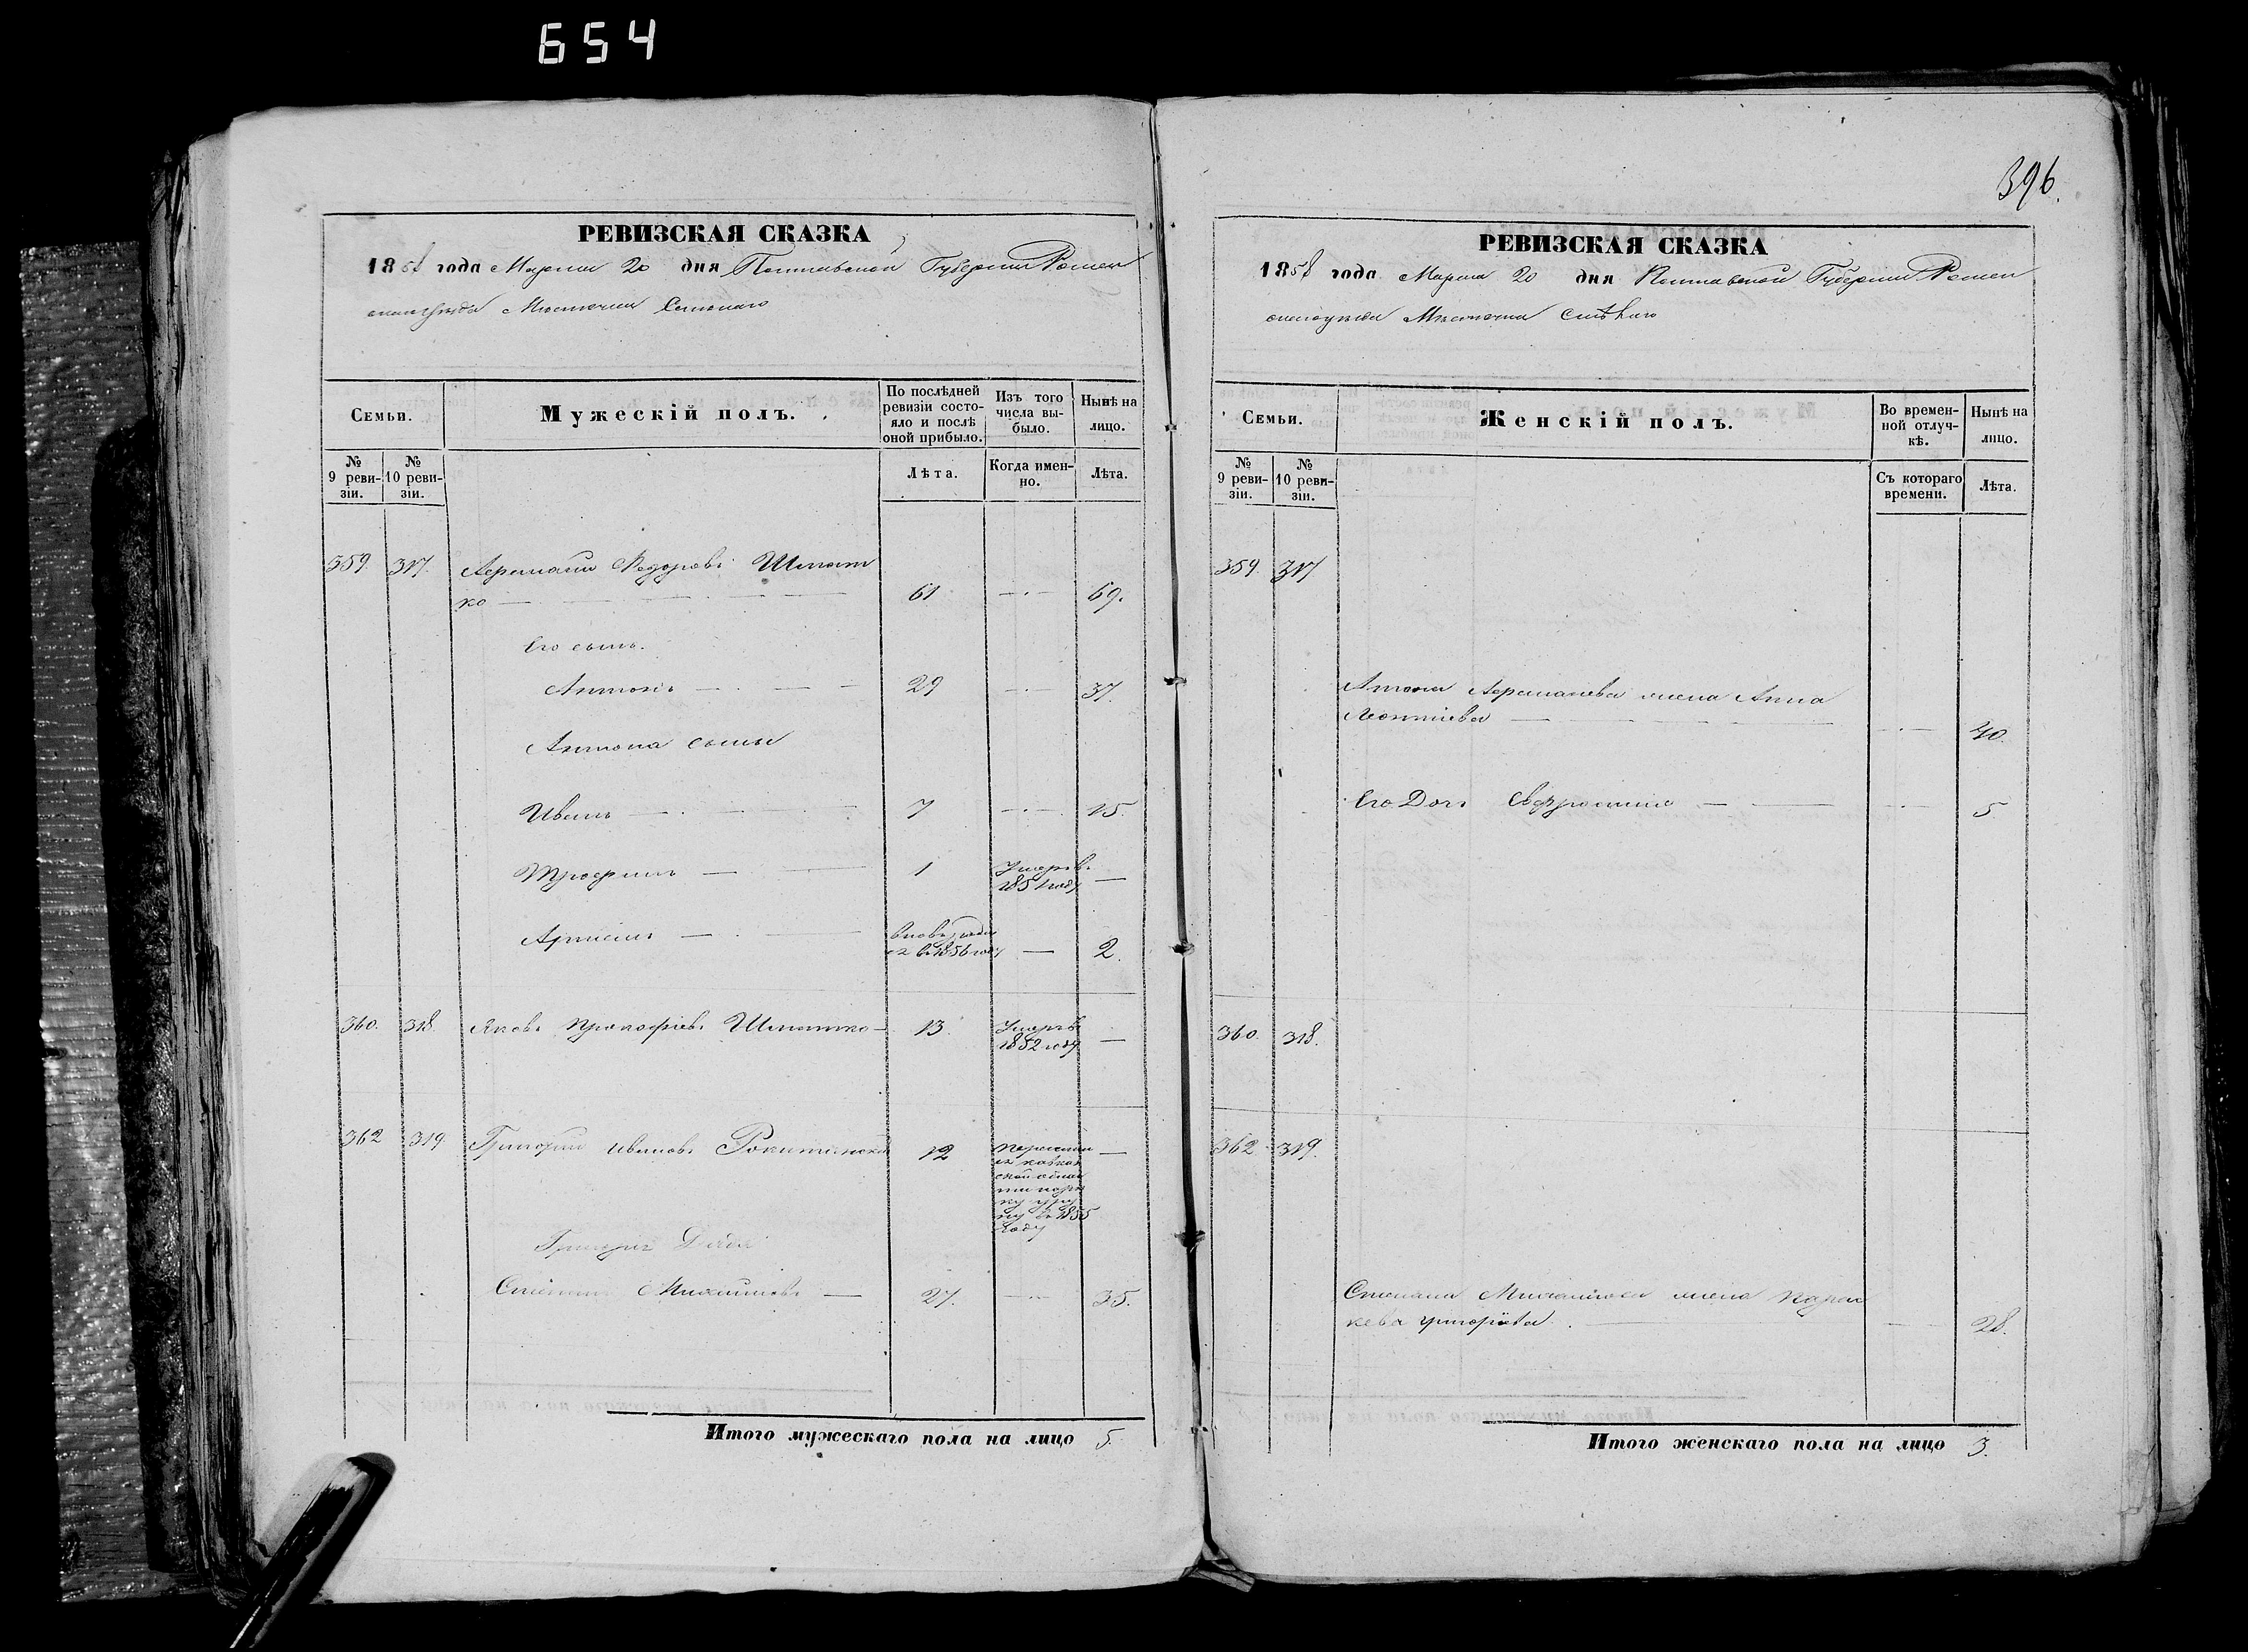 654
396.
РЕВИЗСКАЯ СКАЗКА
1858 года Марта 20 дня Полтавской Губернии Ромен
скаго уезда Местечка
Семьи.
Мужескій полъ.
По послѣдней ревизіи состо-
яло и послѣ
оной прибыло.
Изъ того
числа вы-
было.
Нынѣ на
лицо.
№
9 реви-
зіи.
№
10 реви-
зіи.
Лѣта.
Когда имен-
но.
Лѣта.
359. 317. Федоровъ Шмат
ко 61 69.
Его сынъ.
Антонъ 29 37.
Антона сыны
Иванъ 7 15.
Трофимъ 1 Умеръ въ
1851 году
Артемъ вновь
въ 1856 году 2.
360. 318. Яковъ Прокофіевъ Шматко 13. Умеръ въ
1852 году
362 319. Григорій Ивановъ Рокитянскій 12
въ 1855
году
Григорія Дядя
Степанъ Михайловъ 27. 35.
Итого мужескаго пола на лицо 5.
РЕВИЗСКАЯ СКАЗКА
1858 года Марта 20 дня Полтавской Губернии Ромен
скаго уезда Местечка
Семьи.
Женскій полъ.
Во времен-
ной отлуч-
кѣ.
Нынѣ на
лицо.
№
9 реви-
зіи.
№
10 реви-
зіи.
Съ котораго
времени.
Лѣта.
359. 317
Антона жена Анна
Леонтіева 40.
Его Дочь Евфросинія 5
360. 318.
362 319.
Степана Михайлова жена Парас
кева Григоріева 28.
Итого женскаго пола на лицо 3.